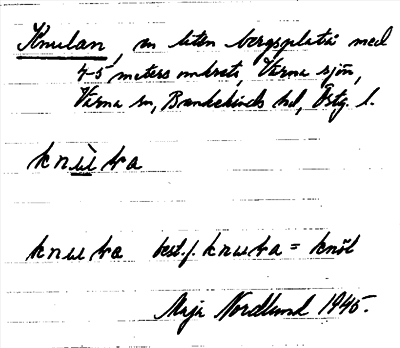 Knulan, en liten bergsplatå med
4-5 meters omkrets, Värna sjön,
Värna sn, Bankekinds hd, Östg. l.
knùla
knula best. f. knula = knöl
Maja Nordlund 1945.